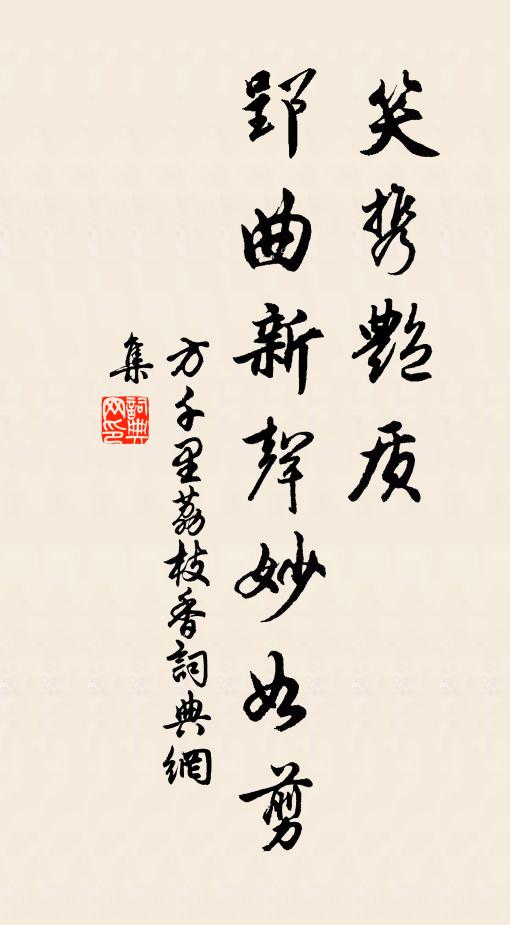 笑携艷质
郢曲新聲妙如剪
方千里荔枝香詞典網
集
詞典网印